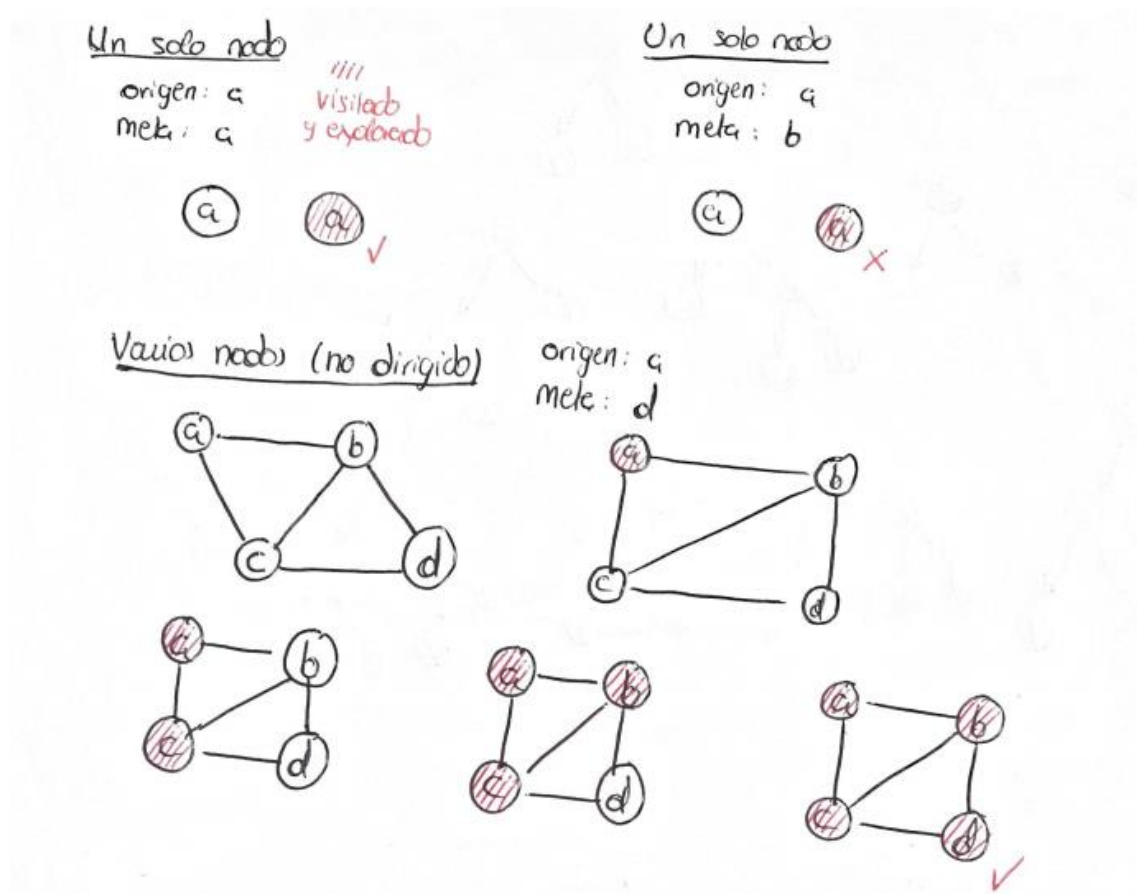 Un solo nodo
origen: a
meta: a
visitado
y explorado
a
a
Un solo nodo
origen: a
meta: b
a
a
Varios nodos (no dirigido)
origen: a
meta: d
a
b
c
d
a
b
c
d
a
b
c
d
a
b
c
d
a
b
c
d